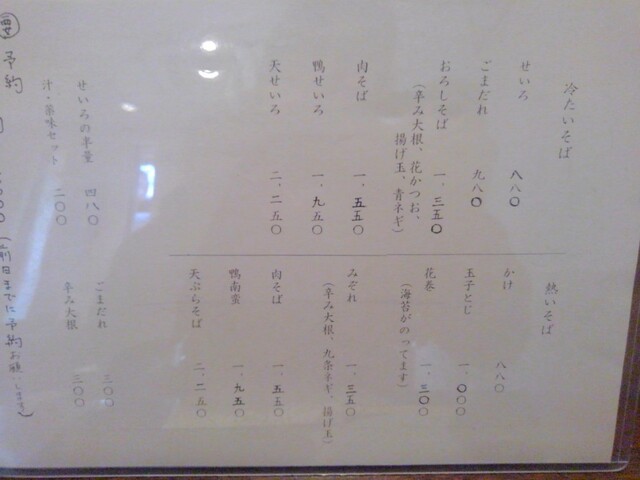 冷たいそば
せいろ 八八〇
ごまだれ 九八〇
おろしそば 一、三五〇
(辛み大根、花かつお、
揚げ玉、青ネギ)
肉そば 一、五五〇
鴨せいろ 一、九五〇
天せいろ 二、二五〇
熱いそば
かけ 八八〇
玉子とじ 一、〇〇〇
花巻 一、三〇〇
(海苔がのってます)
みぞれ 一、三五〇
(辛み大根、九条ネギ、揚げ玉)
肉そば 一、五五〇
鴨南蛮 一、九五〇
天ぷらそば 二、二五〇
せいろの半量 四八〇
汁・薬味セット 二〇〇
ごまだれ 三〇〇
辛み大根 三〇〇
予約
(前日までに予約お願いします)